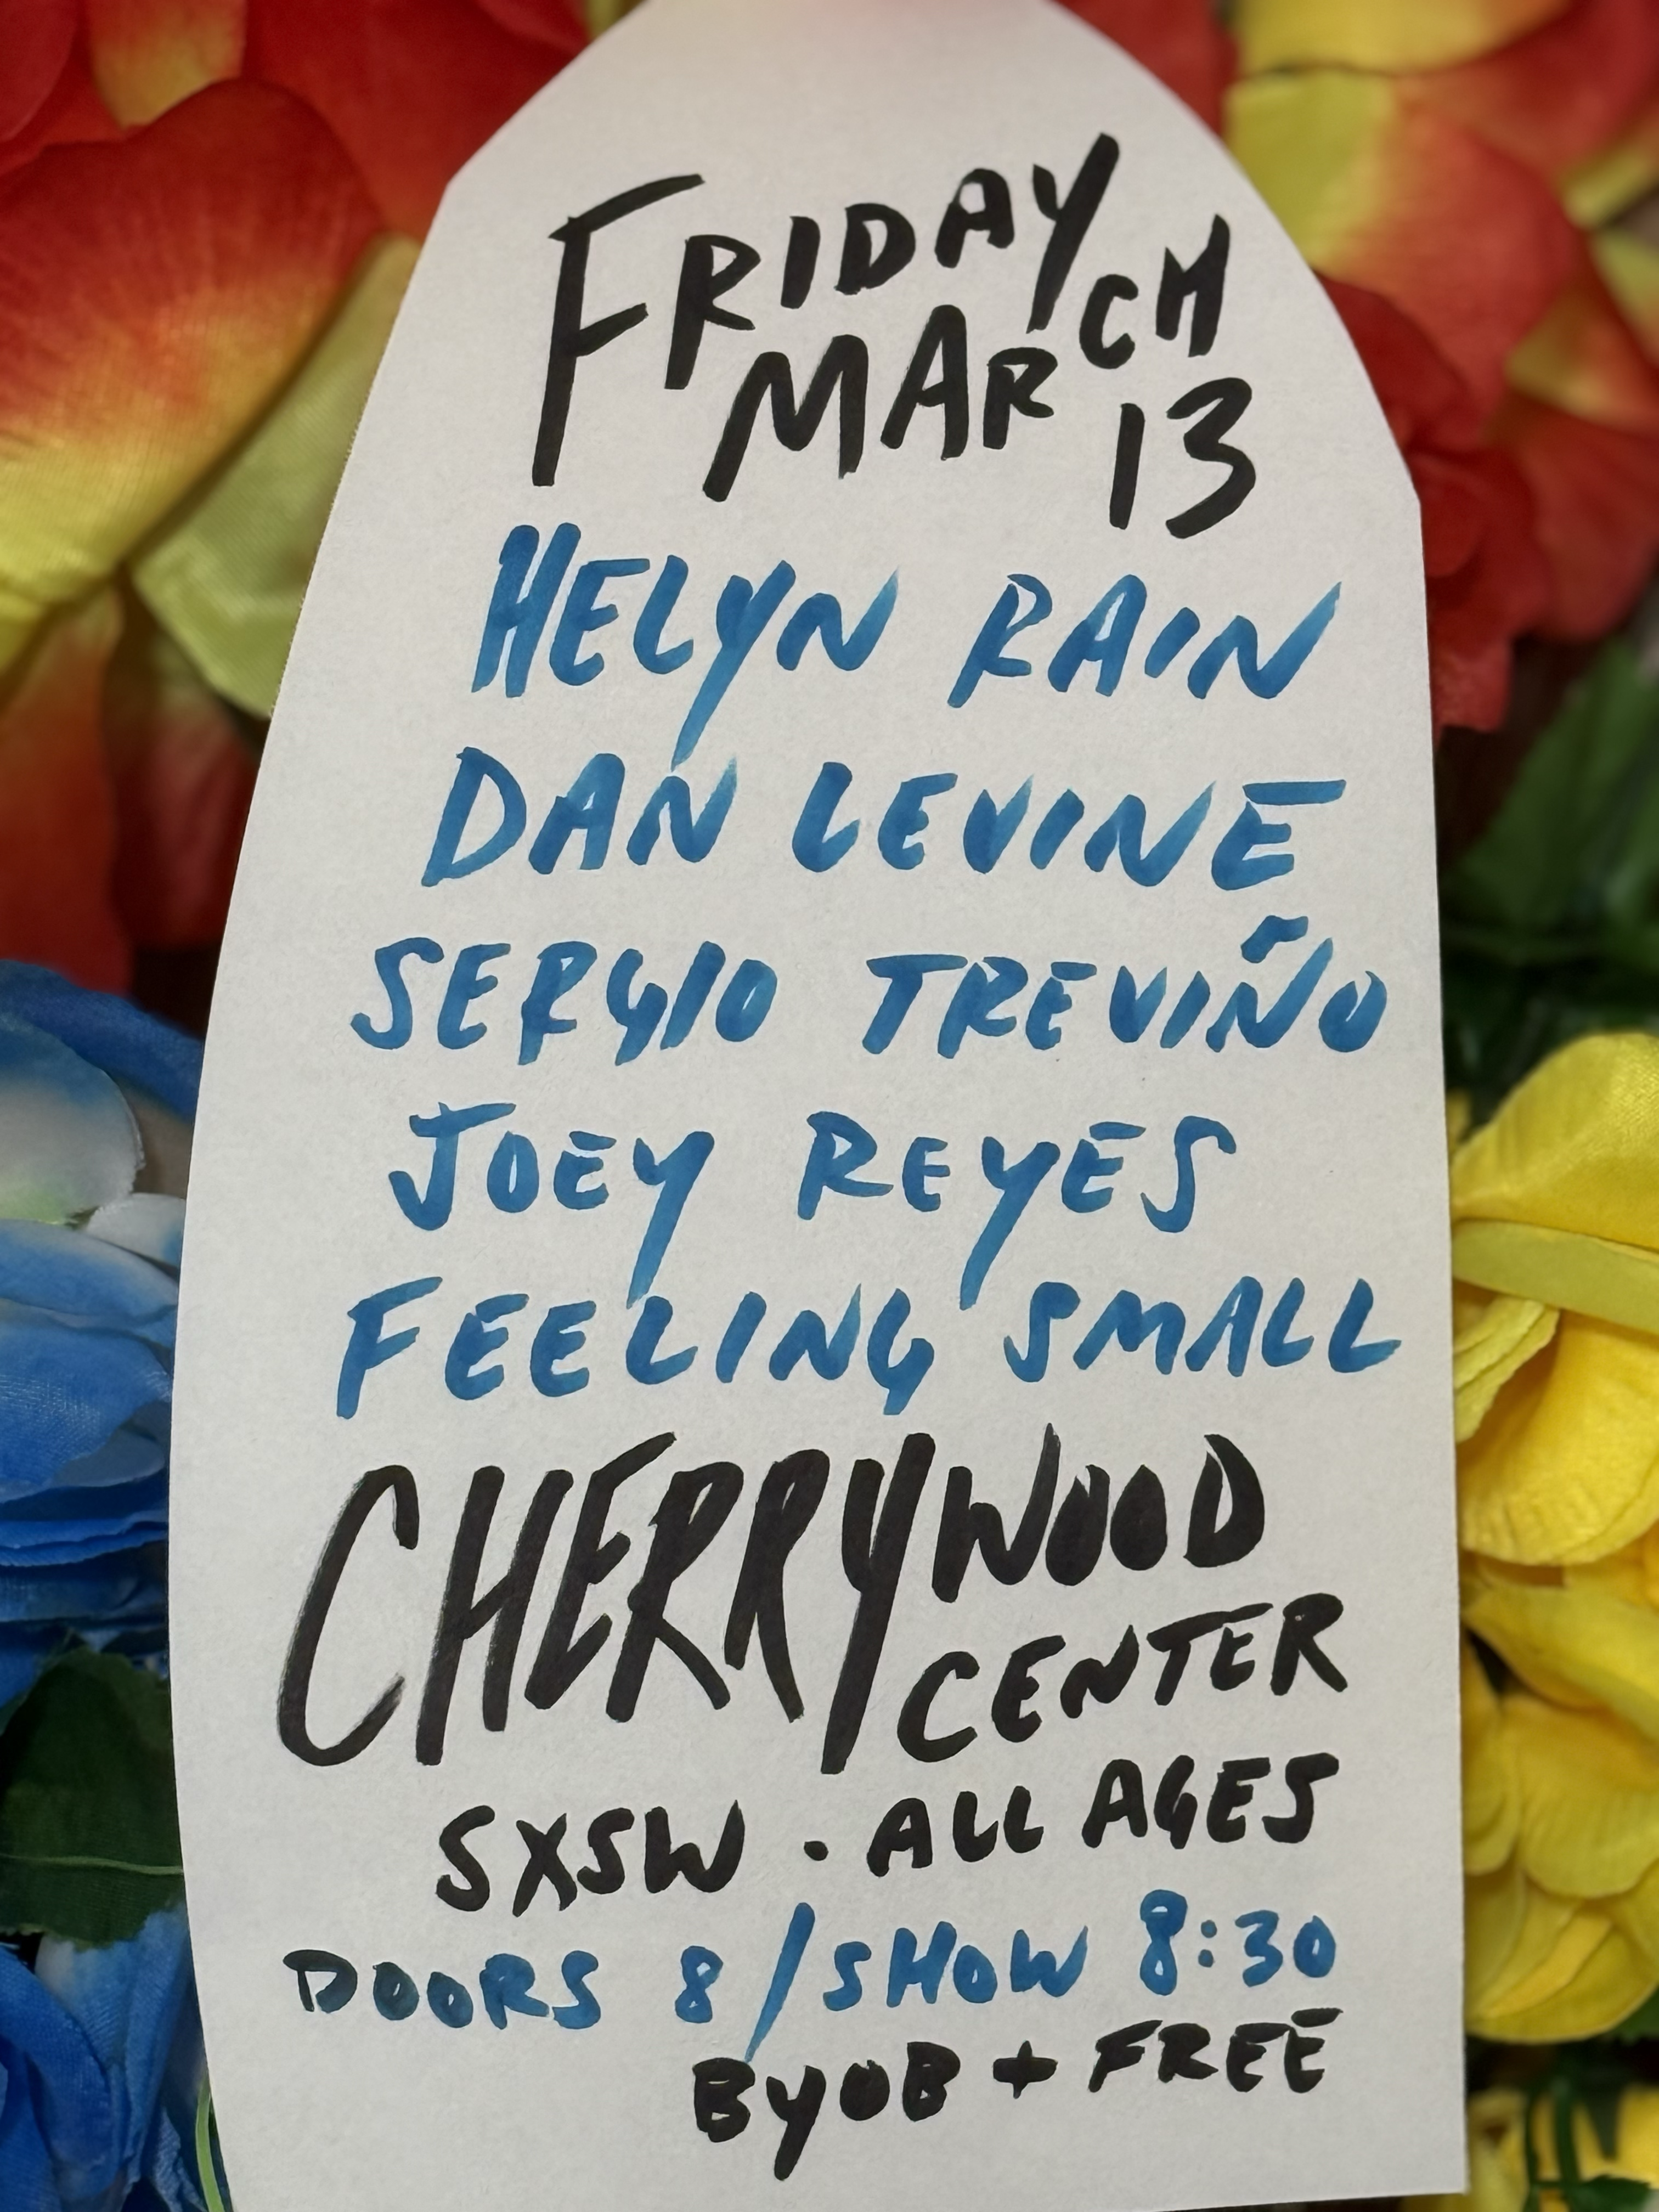 FRIDAY
MARCH
13
HELYN RAIN
DAN LEVINE
SERGIO TREVIÑO
JOEY REYES
FEELING SMALL
CHERRYWOOD
CENTER
SXSW · ALL AGES
DOORS 8 / SHOW 8:30
BYOB + FREE